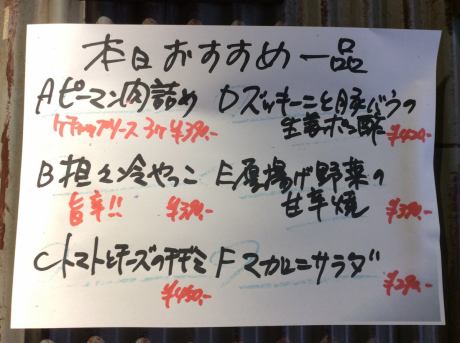 本日おすすめ一品
Aピーマン肉詰め
ケチャップソース 3ケ ¥390-
B担々冷やっこ
旨辛!! ¥390-
Cトマトとチーズのチヂミ
¥450-
Dズッキーニと豚バラの
生姜ポン酢 ¥420-
E厚揚げ野菜の
甘辛焼 ¥390-
Fマカロニサラダ
¥290-